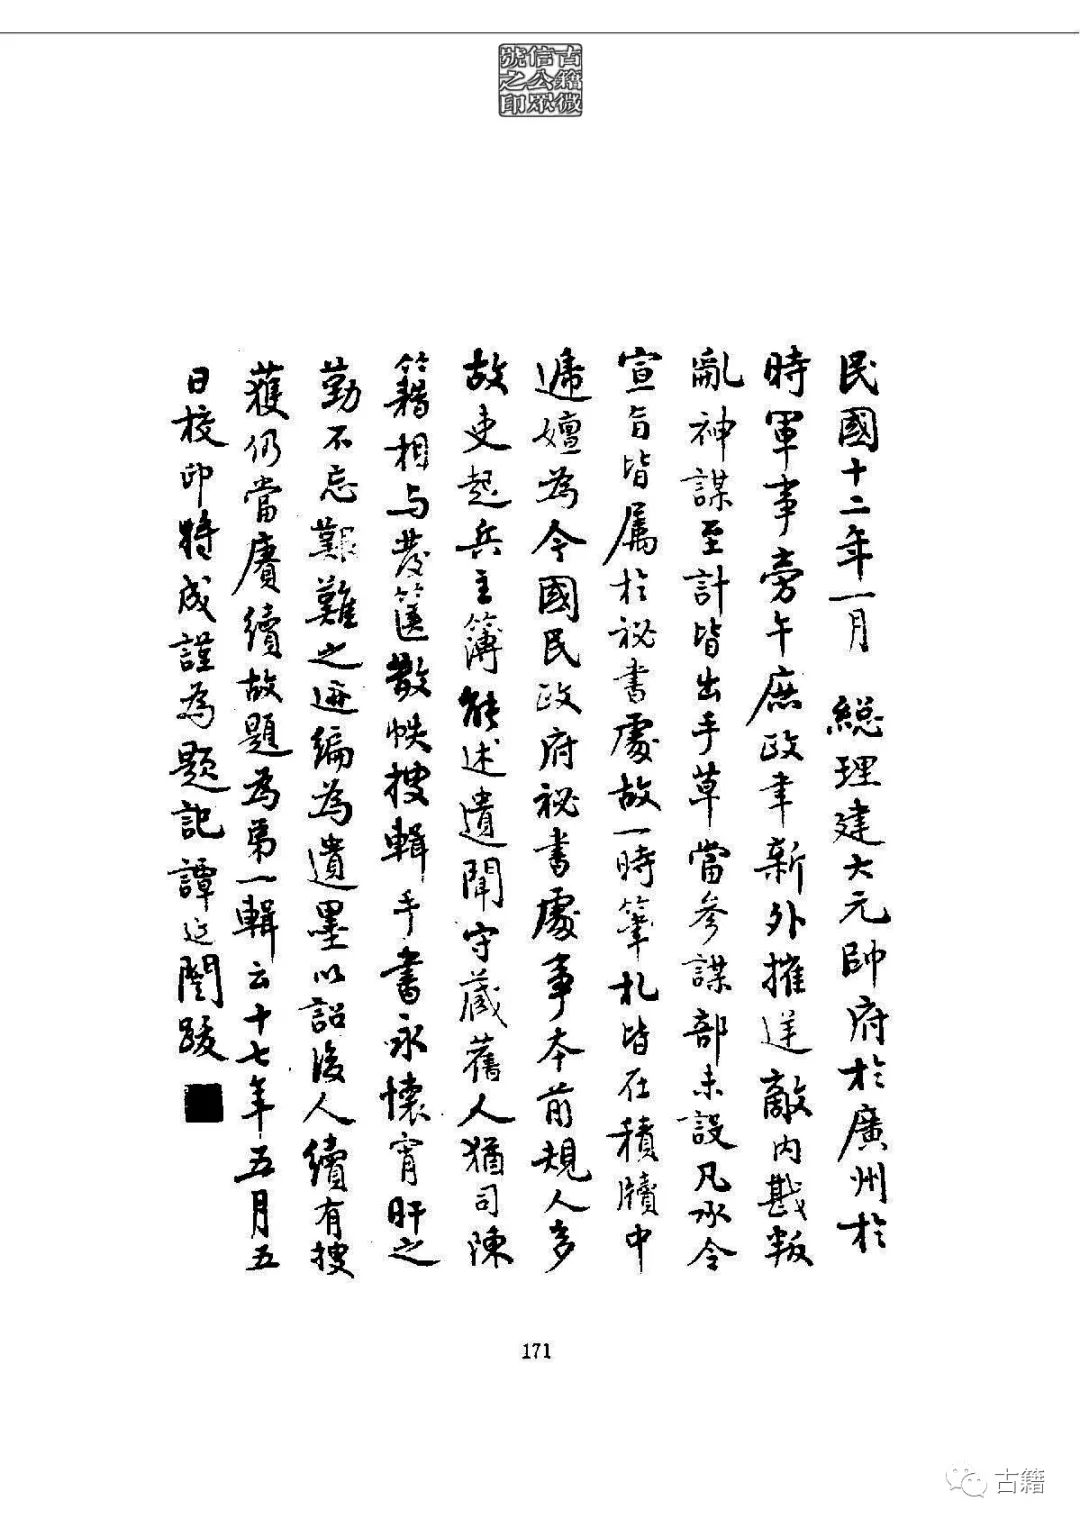 古籍微
信公眾
號之印
民國十二年一月　總理建大元帥府於廣州於
時軍事旁午庶政聿新外摧逆敵內戡叛
亂神謀至計皆出手草當參謀部未設凡承令
宣旨皆屬於祕書處故一時筆札皆在積牘中
遞嬗為今國民政府祕書處事本前規人多
故吏起兵主簿能述遺聞守藏舊人猶司陳
籍相与發篋散帙搜輯手書永懷宵旰之
勤不忘艱難之迹編為遺墨以詔後人續有搜
獲仍當賡續故題為第一輯云十七年五月五
日校印特成謹為題記譚延闓跋
171
古籍